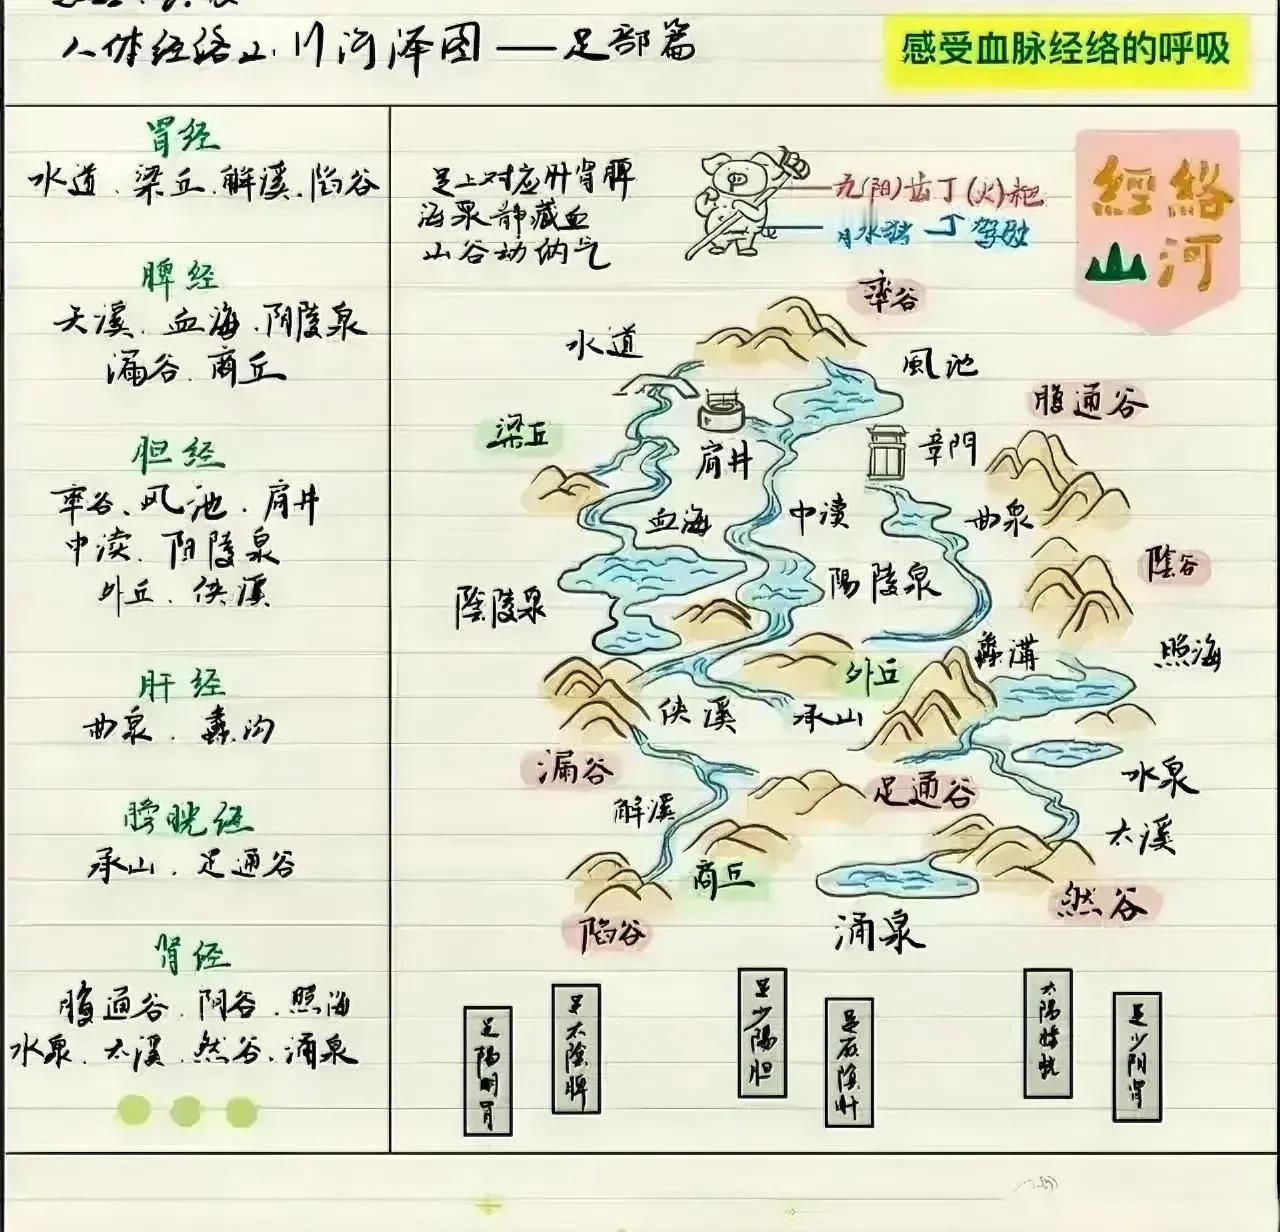 人体经络山川河泽图——足部篇
感受血脉经络的呼吸
胃经
水道、梁丘、解溪、陷谷
脾经
天溪、血海、阴陵泉
漏谷、商丘
胆经
率谷、风池、肩井
中渎、阴陵泉
外丘、侠溪
肝经
曲泉、蠡沟
膀胱经
承山、足通谷
肾经
腹通谷、阴谷、照海
水泉、太溪、然谷、涌泉
足上对应肝肾脾
海泉静藏血
山谷动纳气
九(阳)齿丁(火)耙
丁驾驶
經絡
山河
率谷
水道
風池
腹通谷
梁丘
肩井
章門
血海
中渎
曲泉
陰陵泉
陽陵泉
陰谷
外丘
蠡溝
照海
侠溪
承山
漏谷
足通谷
水泉
解溪
太溪
商丘
然谷
陷谷
涌泉
足陽明胃
足太陰脾
足少陽胆
足厥陰肝
太陽膀胱
足少阴肾